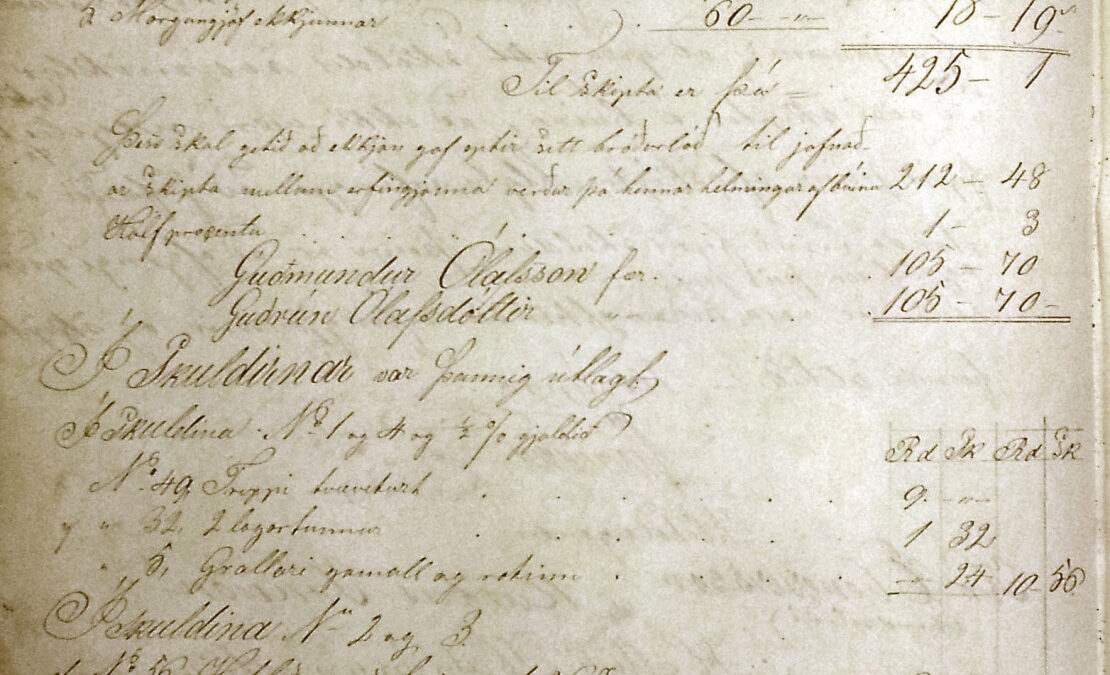 2 Morgungjöf ekkjunnar 60 - " - 18 - 19
Til Skipta er þá = 425 - 1
Þess skal getið að ekkjan gaf eptir sett bróðurlóð til jafnað-
ar Skipta mellum erfingjanna verður þá hennar helmingur af búinu 212 - 48
Hálf prosenta 1 - 3
Guðmundur Ólafsson fær 105 - 70
Guðrún Ólafsdóttir 105 - 70 -
Í Skuldirnar var þannig útlagt,
Í Skuldina No 1 og 4 og ½ % gjaldið
Rd Sk Rd Sk
No 49, Trippi tvæveturt 9. - " -
" " 32, 2 lagartunnur 1 32
" 5, Grallari gamall og rotinn - " - 24 10 - 56
Í Skuldina No 2 og 3
No 56